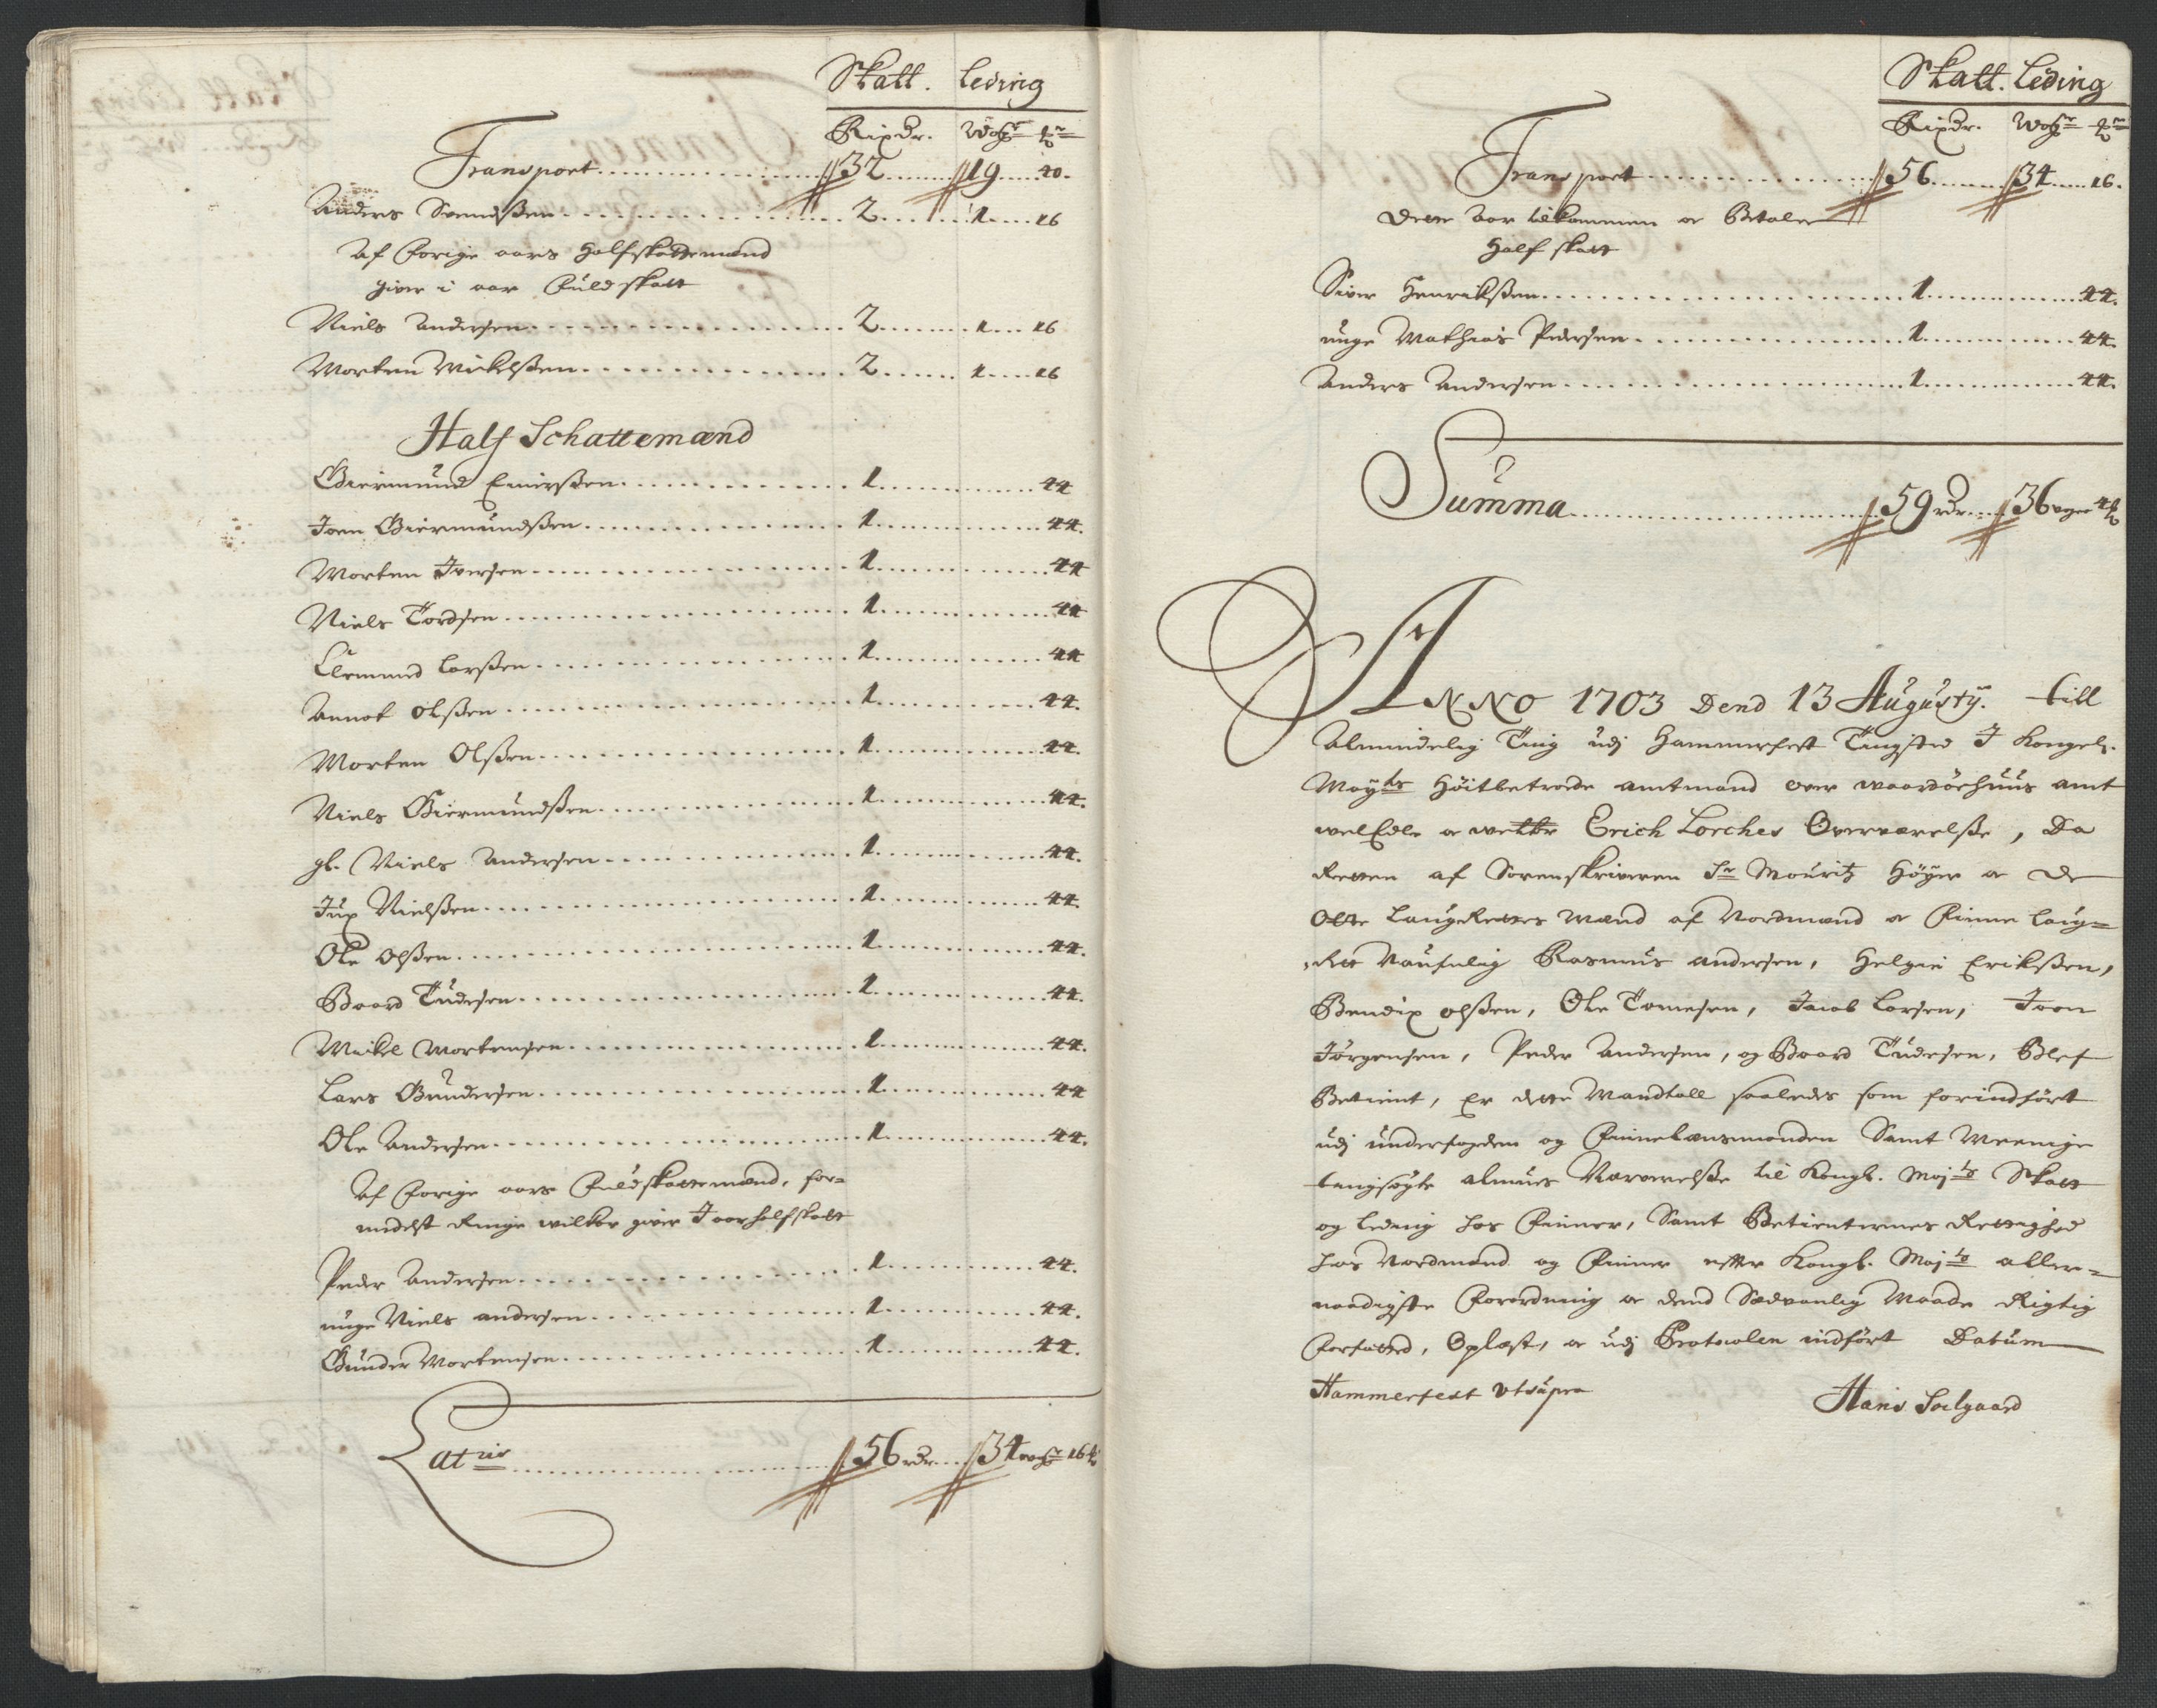 Skatt. Leding
Rixdr. Woger lb
Transport 32 19 20.
Anders Svendßen 2 1 16
Af Forige aars Halfskattemænd
giver i aar Fuld skatt
Niels Andersen 2 1 16
Morten Mikelßen 2 1 16
Half Schattemænd
Giermund Einerßen 1 44
Joen Giermundßen 1 44.
Morten Iversen 1 44
Niels Tordsen 1 44
Clemmed Larßen 1 44
Annot Olßen 1 44.
Morten Olßen 1 44.
Niels Giermundßen 1 44.
gl. Niels Andersen 1 44.
Jux Nielßen 1 44.
Ole Olßen 1 44.
Baard Tudesen 1 44.
Mickel Mortensen 1 44.
Lars Gundersen 1 44
Ole Andersen 1 44.
Af Forige aars Fuldskattemænd, for=
midelst Ringe wilkor giver J aar half skatt
Peder Andersen 1 44.
unge Niels andersen 1 44.
Gunder Mortensen 1 44.
Latris 56 rdr 34 woger 16 lb
Skatt. Leding
Rixdr. Woger lb
Transport 56 34 16.
Dette aar tilkommen og Betaler
Half skatt
Siver Henrikßen 1 44.
unge Mathias Pedersen 1 44.
Anders Andersen 1 44.
Summa 59 rdr 36 woger 4 lb
ANNO 1703 Dend 13 Augusty. till
Almindelig Ting udj Hammerfest Tingsted J Kongel.
Mayts Höitbetrode amtmand over waardöehuus amt
welEdle og Erich Lorches Overværelße, Da
Retten af Sorenskriveren Sr Mouritz Höyer og De
Otte LaugRettes Mænd af Nordmænd og Finne laug=
Rett Naufnlig Rasmus andersen, Helgie Erikßen,
Bendix olßen, Ole Tomesen, Jacob Larsen, Joen
Jörgensen, Peder Andersen, og Baard Tudesen, Blef
Betient, Er dette Mandtall saaledes som forindfört
udj underfogden og Finnelænsmanden Samt Meenige
tingsøgte almues Nærverelße til Kongl. Majts Skatt
og Leding hos Finner, Samt Betienternes Rettighed
hos Nordmænd og Finner efter Kongl. Majts aller=
naadigste Forordning og dend Sædvanlig Maade Rigtig
Forfatted, Oplæst, og udj Protocolen indfört Datum
Hammerfest Utsupra
Hans Solgaard